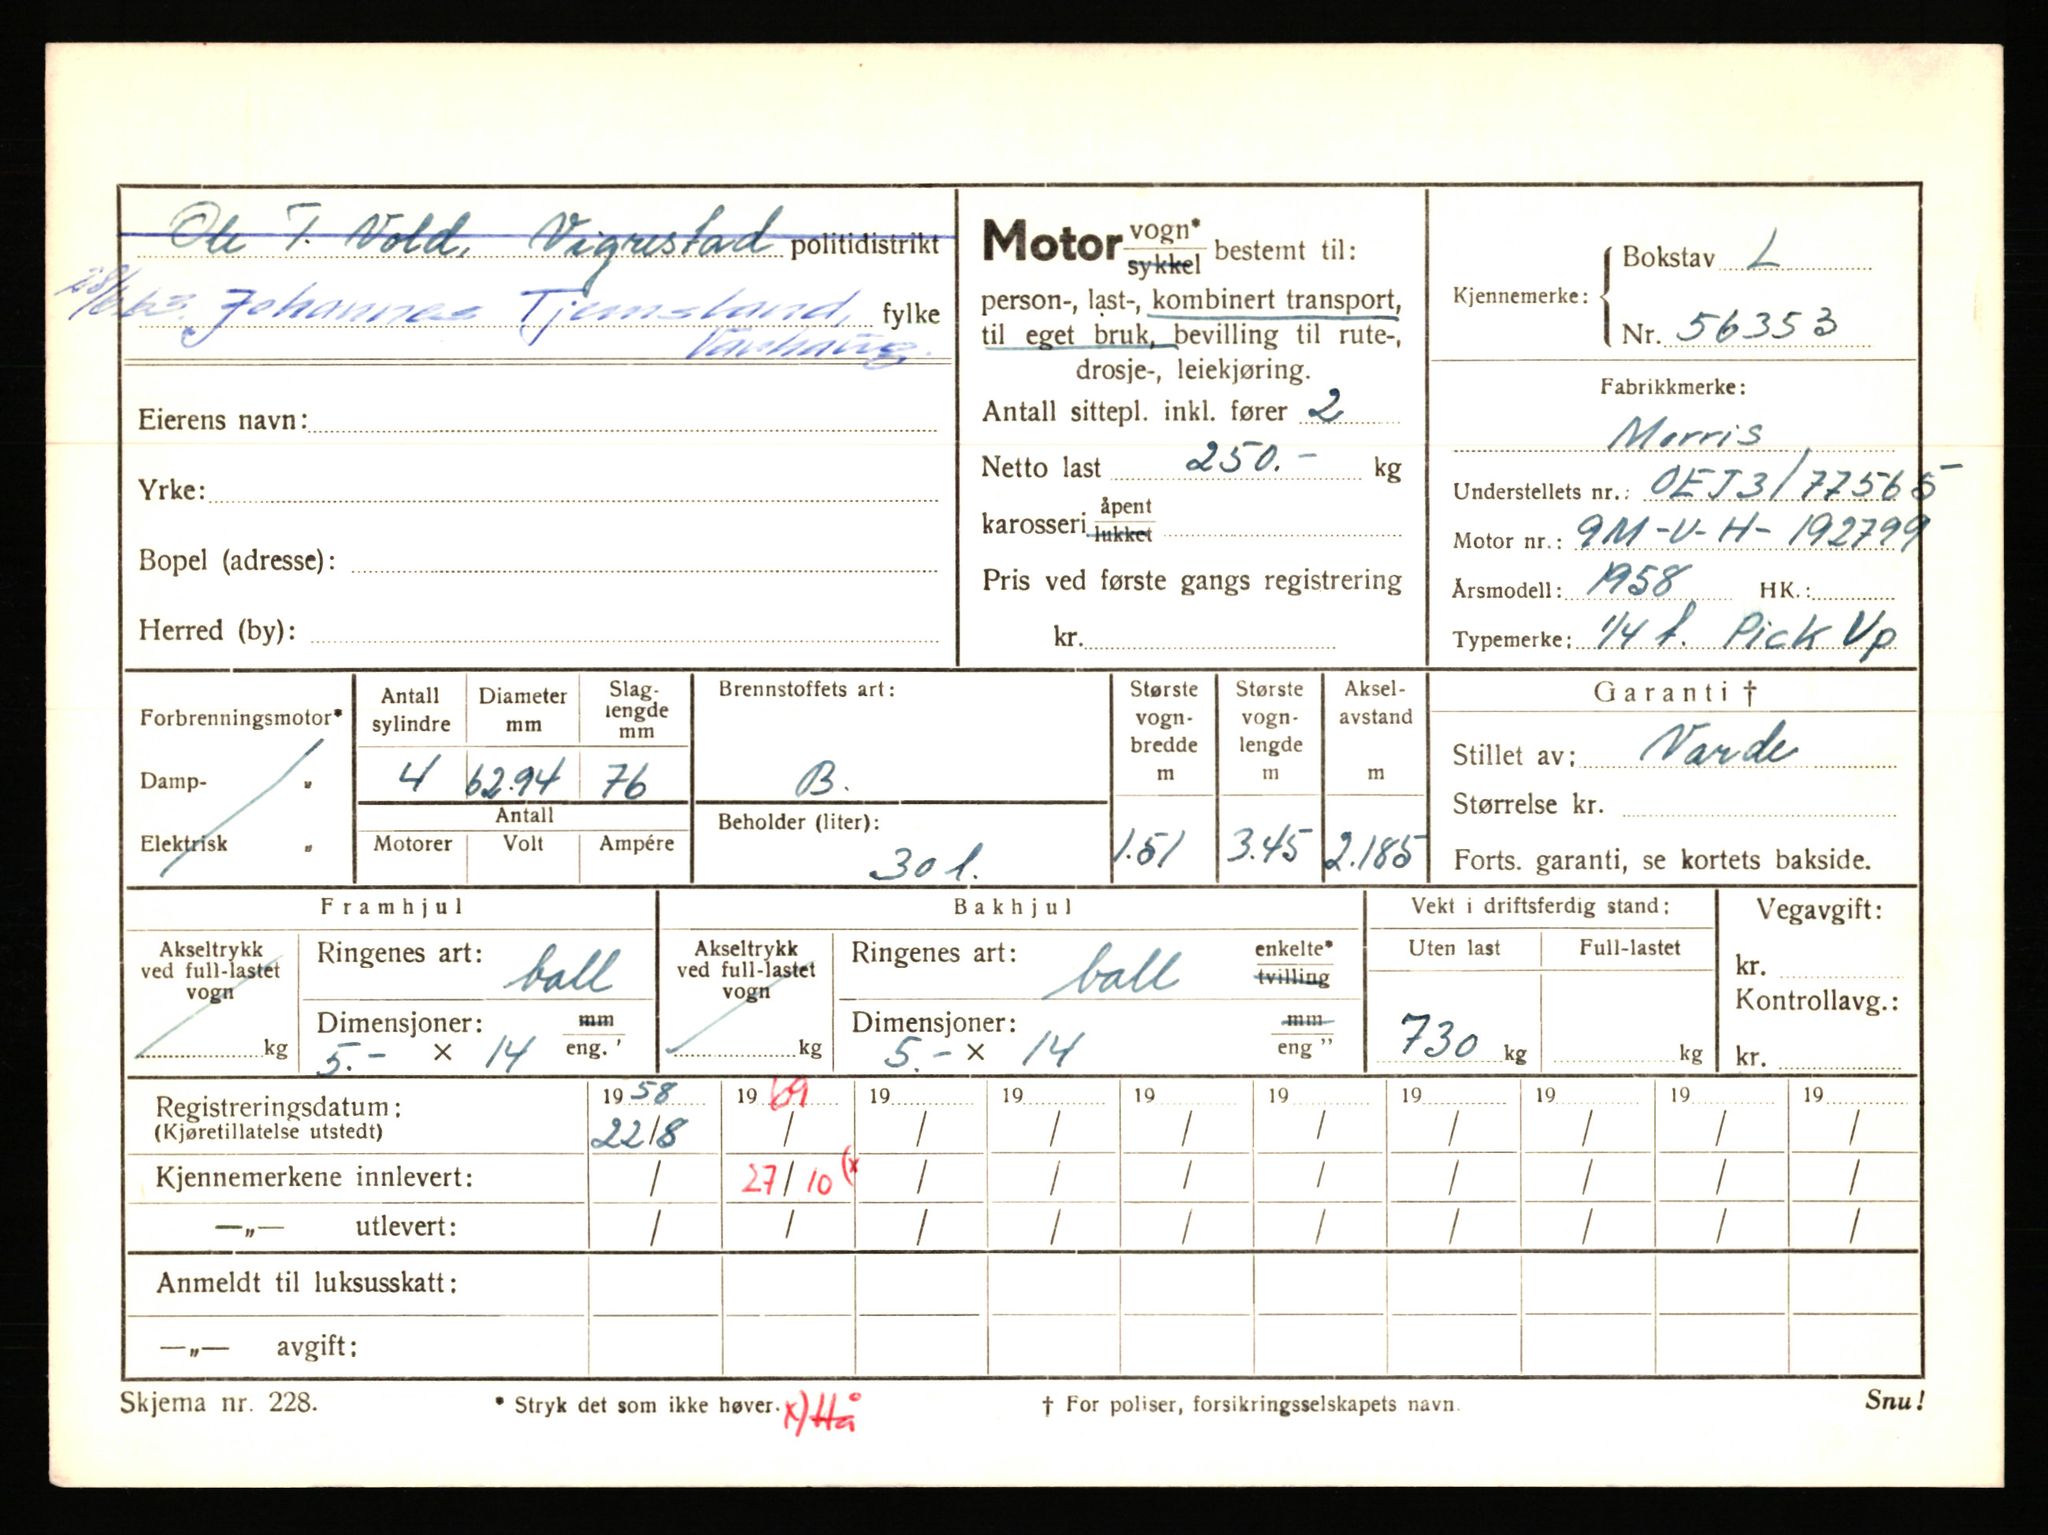 Ole T. Vold, Vigrestad politidistrikt
Johannes Tjemsland, fylke
Varhaug.
Eierens navn:
Yrke:
Bopel (adresse):
Herred (by):
Motor vogn* sykkel bestemt til:
person-, last-, kombinert transport,
til eget bruk, bevilling til rute-,
drosje-, leiekjøring.
Antall sittepl. inkl. fører 2
Netto last 250.- kg
karosseri åpent lukket
Pris ved første gangs registrering
kr.
Kjennemerke: Bokstav L
Nr. 56353
Fabrikkmerke:
Morris
Understellets nr.: OEJ3/77565
Motor nr.: 9M-U-H-192799
Årsmodell: 1958 HK.:
Typemerke: 1/4 t. Pick Up
Forbrenningsmotor*
Damp- „
Elektrisk „
Antall sylindre
4
Diameter mm
62.94
Slag-lengde mm
76
Antall
Motorer Volt Ampére
Brennstoffets art:
B.
Beholder (liter):
30 l.
Største vogn-bredde m
1.51
Største vogn-lengde m
3.45
Aksel-avstand m
2.185
Garanti †
Stillet av: Varde
Størrelse kr.
Forts. garanti, se kortets bakside.
Framhjul
Akseltrykk ved full-lastet vogn
kg
Ringenes art: ball
Dimensjoner: mm eng. '
5.- × 14
Bakhjul
Akseltrykk ved full-lastet vogn
kg
Ringenes art: ball enkelte* tvilling
Dimensjoner: mm eng "
5.- × 14
Vekt i driftsferdig stand:
Uten last Full-lastet
730 kg kg
Vegavgift:
kr.
Kontrollavg.:
kr.
Registreringsdatum: 1958 1969 19 19 19 19 19 19 19 19
(Kjøretillatelse utstedt) 22/8 / / / / / / / / /
Kjennemerkene innlevert: / 27/10 (x / / / / / / / /
—„— utlevert: / / / / / / / / / /
Anmeldt til luksusskatt:
—„— avgift:
Skjema nr. 228. * Stryk det som ikke høver. x) Hå † For poliser, forsikringsselskapets navn. Snu!